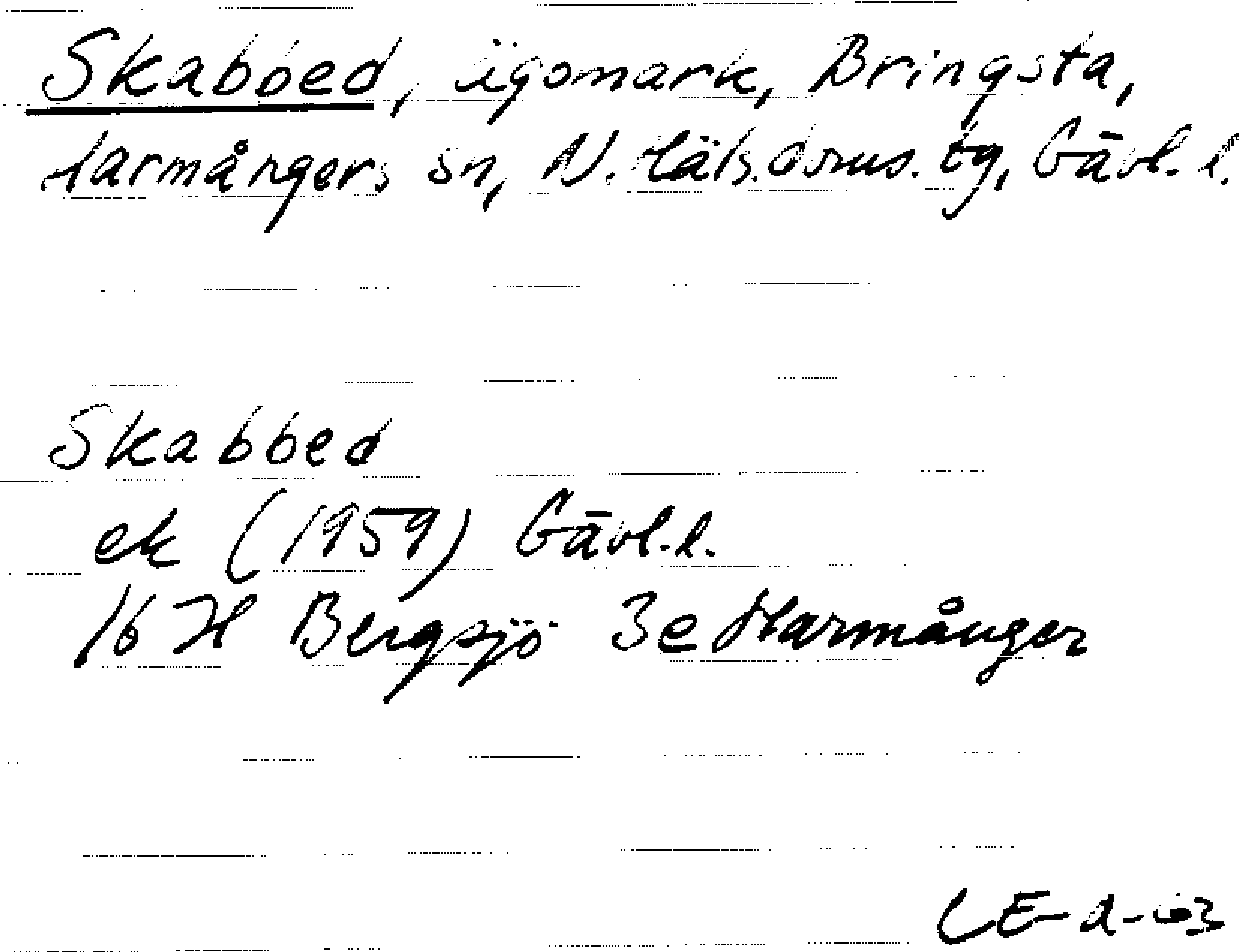 Skabbed, ägomark, Bringsta,
Harmångers sn, N. Häls. doms. tg, Gävl. l.
Skabbed
ek (1959) Gävl. l.
16 H Bergsjö 3e Harmånger